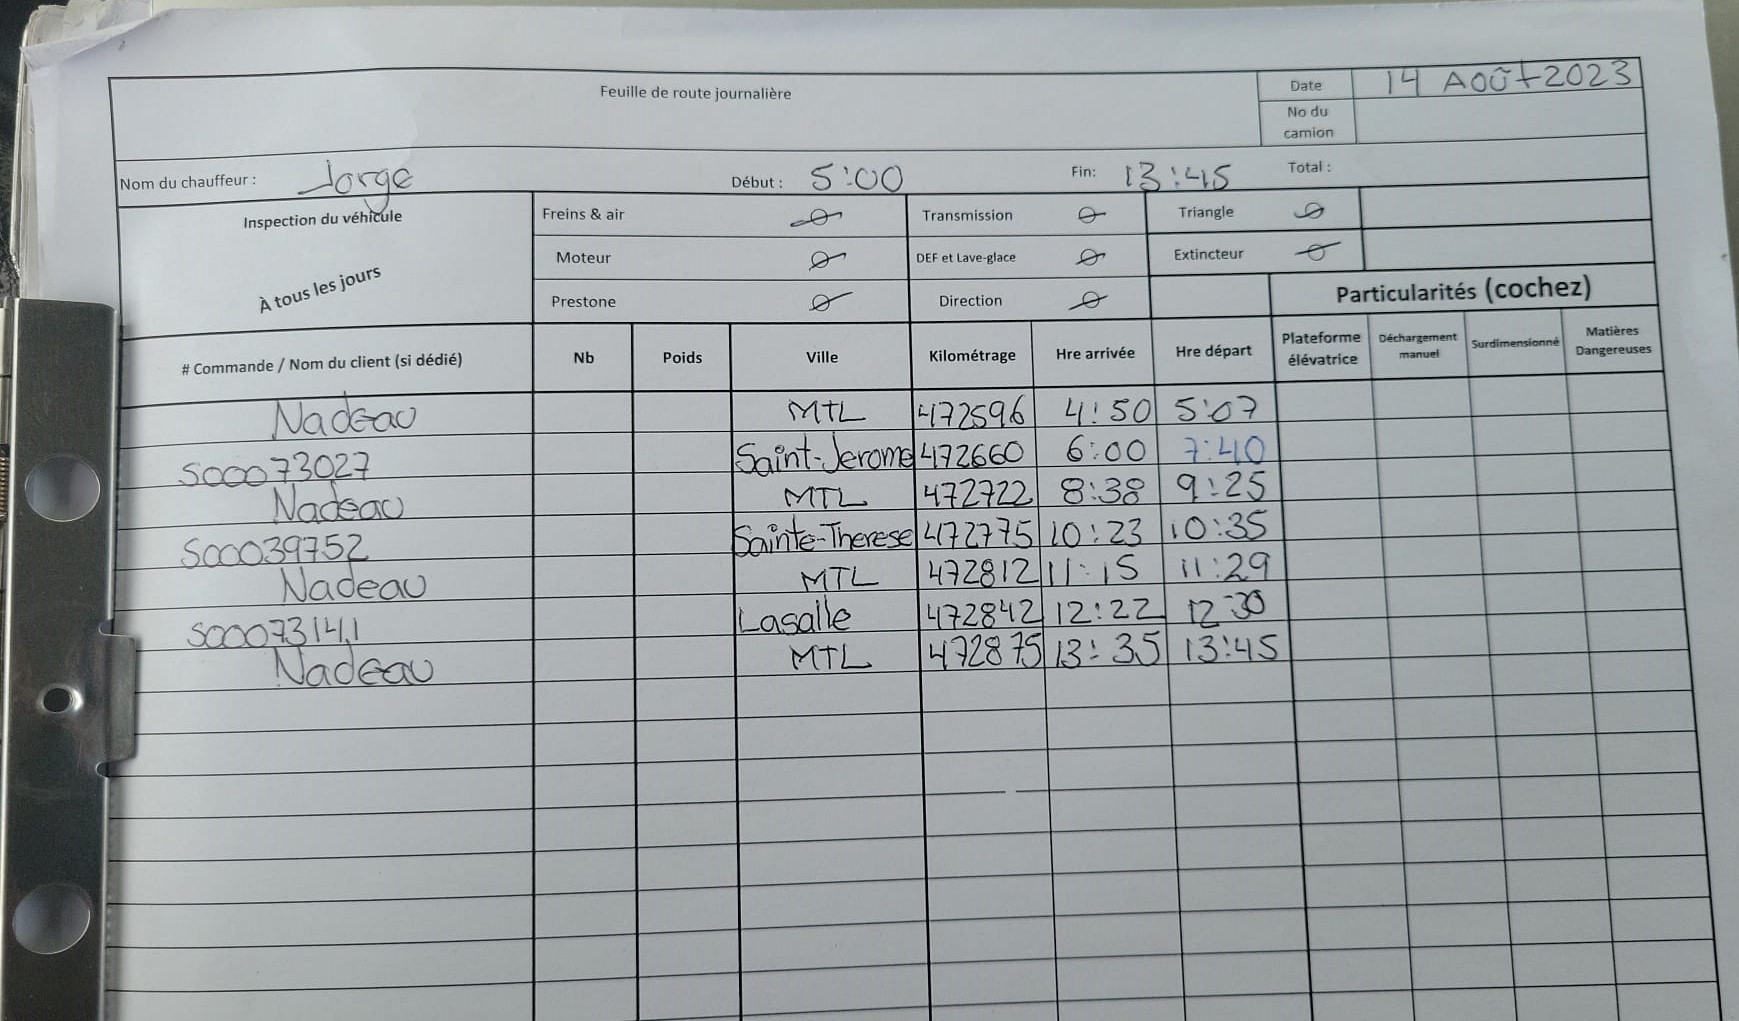 Feuille de route journalière
Date 14 AOÛt 2023
No du camion
Nom du chauffeur : Jorge Début : 5:00 Fin: 13:45 Total :
Inspection du véhicule
À tous les jours
Freins & air Transmission Triangle
Moteur DEF et Lave-glace Extincteur
Prestone Direction
Particularités (cochez)
# Commande / Nom du client (si dédié) Nb Poids Ville Kilométrage Hre arrivée Hre départ Plateforme élévatrice Déchargement manuel Surdimensionné Matières Dangereuses
Nadeau MTL 472596 4:50 5:07
S00073027 Saint-Jerome 472660 6:00 7:40
Nadeau MTL 472722 8:38 9:25
S00039752 Sainte-Therese 472775 10:23 10:35
Nadeau MTL 472812 11:15 11:29
S00073141 Lasalle 472842 12:22 12:30
Nadeau MTL 472875 13:35 13:45